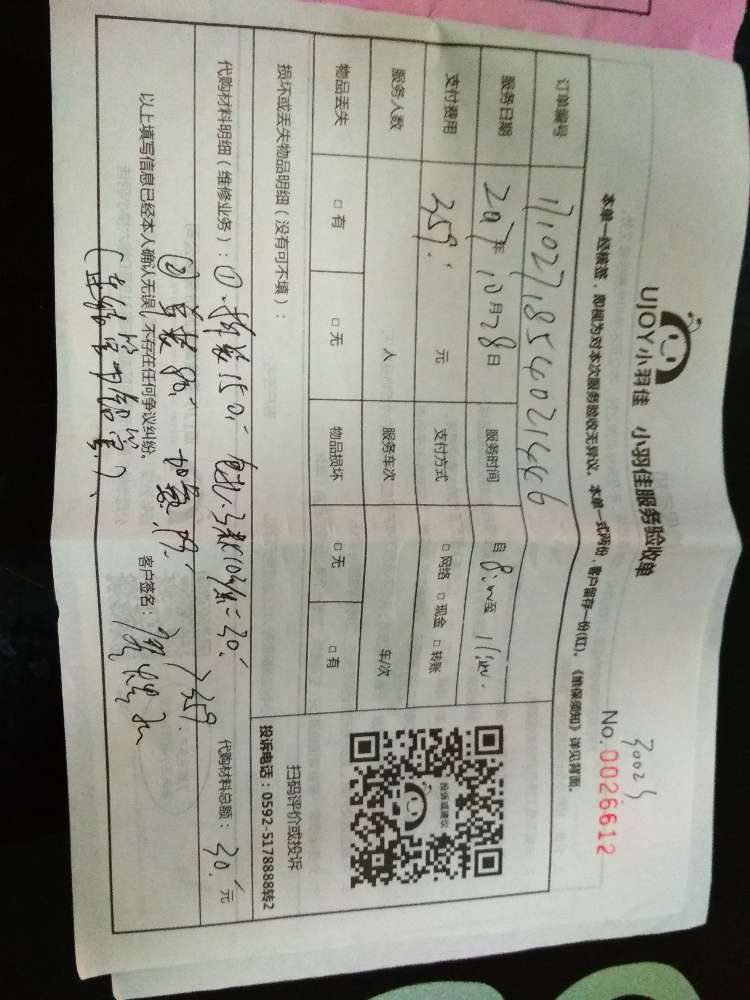 UJOY小羽佳 小羽佳服务验收单
30025
No.0026612
本单一经核签，即视为对本次服务验收无异议。本单一式两份，客户留存一份(红)。《维保须知》详见背面。
订单编号 171027854021446
服务日期 2017年10月28日 服务时间 自8:00至11:00.
支付费用 359. 元 支付方式 □网络 □现金 □转账
服务人数 人 服务车次 车/次
物品丢失 □有 □无 物品损坏 □无 □有
损坏或丢失物品明细（没有可不填）：
扫码评价或投诉
投诉建议
投诉电话：0592-5178888转2
代购材料明细（维修业务）：①.拆装150. 30. 代购材料总额：30.元
② 单装80. 加氟 359.
以上填写信息已经本人确认无误，不存在任何争议纠纷。 客户签名：